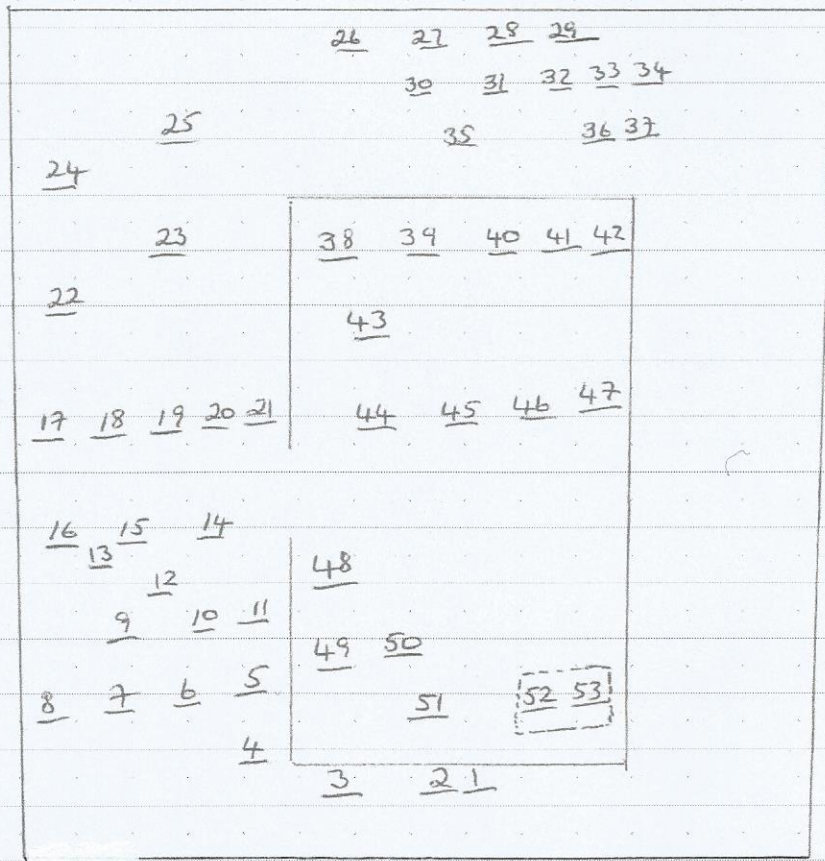 26 27 28 29
30 31 32 33 34
25 35 36 37
24
23 38 39 40 41 42
22
43
17 18 19 20 21 44 45 46 47
16 15 14
13
12 48
9 10 11
49 50
8 7 6 5 51 52 53
4
3 2 1